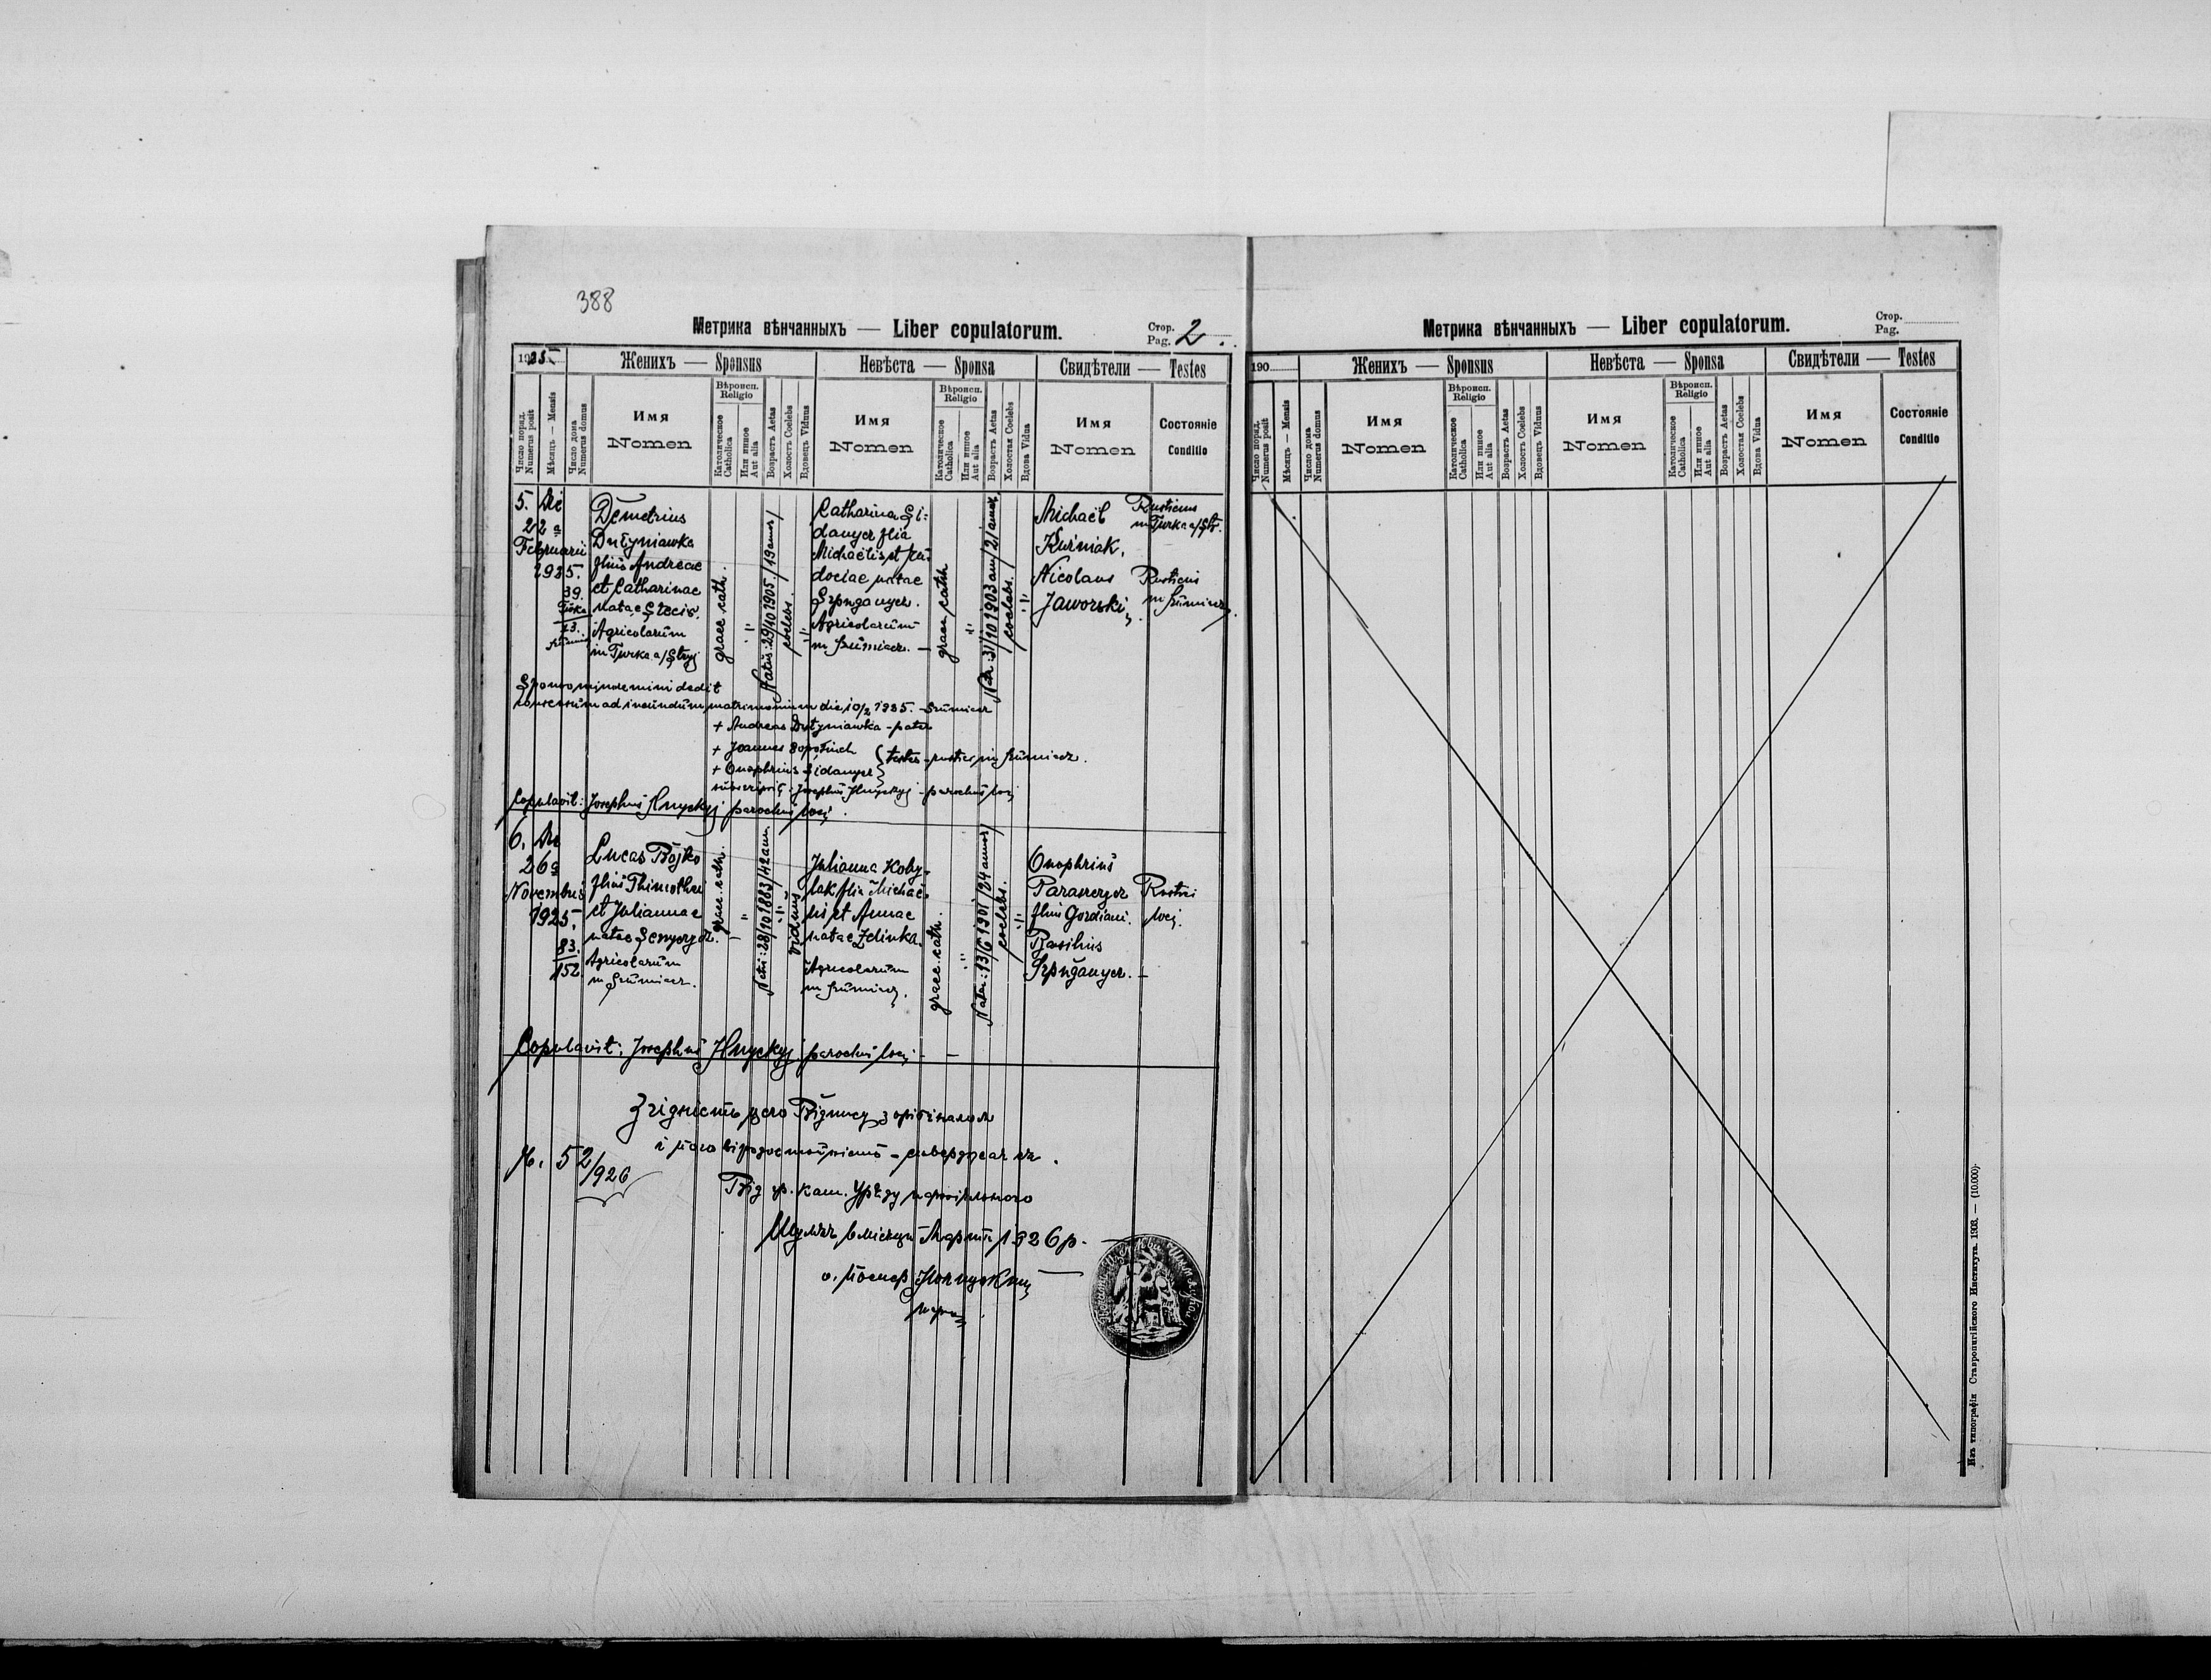 388
Метрика вѣнчанныхъ — Liber copulatorum.
Стор.
Pag. 2.
1925
Женихъ — Sponsus
Невѣста — Sponsa
Свидѣтели — Testes
Число поряд.
Numerus posit
Мѣсяць — Mensis
Число дома
Numerus domus
Имя
Nomen
Вѣроисп.
Religio
Католическое
Catholica
Или инное
Aut alia
Возрастъ Aetas
Холостъ Coelebs
Вдовецъ Viduus
Имя
Nomen
Вѣроисп.
Religio
Католическое
Catholica
Или инное
Aut alia
Возрастъ Aetas
Холостая Coelebs
Вдова Vidua
Имя
Nomen
Состояніе
Conditio
5. Die
22a
Februarii
1925.
39.
Turka
23.
Demetrius
Dutyniawka
filius Andreae
et Catharinae
natae Stecis.
Agricolarum
in Turka a/Stryj
graec. cath.
Natus: 29/10 1905. /19 annos/
coelebs.
Catharina Si-
danycz filia
Michaelis et Eu-
dociae natae
Agricolarum
in Szumiacz. —
graec. cath.
Nata: 31/10 1903 ann /21 annos/
coelebs.
Michaël
Kuśniak,
Nicolaus
Jaworskij.
Rusticus
in Turka a/Str.
Rusticus
in Szumiacz.
Sponso minorenni dedit
consensum ad ineundum matrimonium die 10/2 1925. - Szumiacz
+ Andreas Dutyniawka - pater
+ Joannes
+ Onophrius Sidanycz
testes - rustici in Szumiacz.
subscripsit: Josephus Hnyckyj - parochus loci
Copulavit: Josephus Hnyckyj parochus loci.
6. Die
26a
Novembris
1925.
83.
152
Lucas Bojko
filius Thimothei
et Juliannae
natae Senycz.
Agricolarum
in Szumiacz.
graec. cath.
Natus: 28/10 1883 /42 ann.
viduus
Julianna Koby-
lak filia Michaë-
lis et Annae
natae Zdinka.
Agricolarum
in Szumiacz.
graec. cath.
Nata: 13/6 1901 /24 annos/
coelebs.
Onophrius
Paraszczycz
filius Gordiani.
Basilius
Rustici
loci.
Copulavit: Josephus Hnyckyj parochus loci —
Згідність цего Відпису з оріґіналом
і його вірогідність - стверджаєся.
Ч. 52/926
Від гр. кат. Уряду парохіяльного
Шумяч в місяци Марті 1926 р.
о. Йосиф Гницкий
парох
Метрика вѣнчанныхъ — Liber copulatorum.
Стор.
Pag.
190
Женихъ — Sponsus
Невѣста — Sponsa
Свидѣтели — Testes
Число поряд.
Numerus posit
Мѣсяць — Mensis
Число дома
Numerus domus
Имя
Nomen
Вѣроисп.
Religio
Католическое
Catholica
Или инное
Aut alia
Возрастъ Aetas
Холостъ Coelebs
Вдовецъ Viduus
Имя
Nomen
Вѣроисп.
Religio
Католическое
Catholica
Или инное
Aut alia
Возрастъ Aetas
Холостая Coelebs
Вдова Vidua
Имя
Nomen
Состояніе
Conditio
Изъ типографіи Ставропигійского Института. 1903. — (10.000).